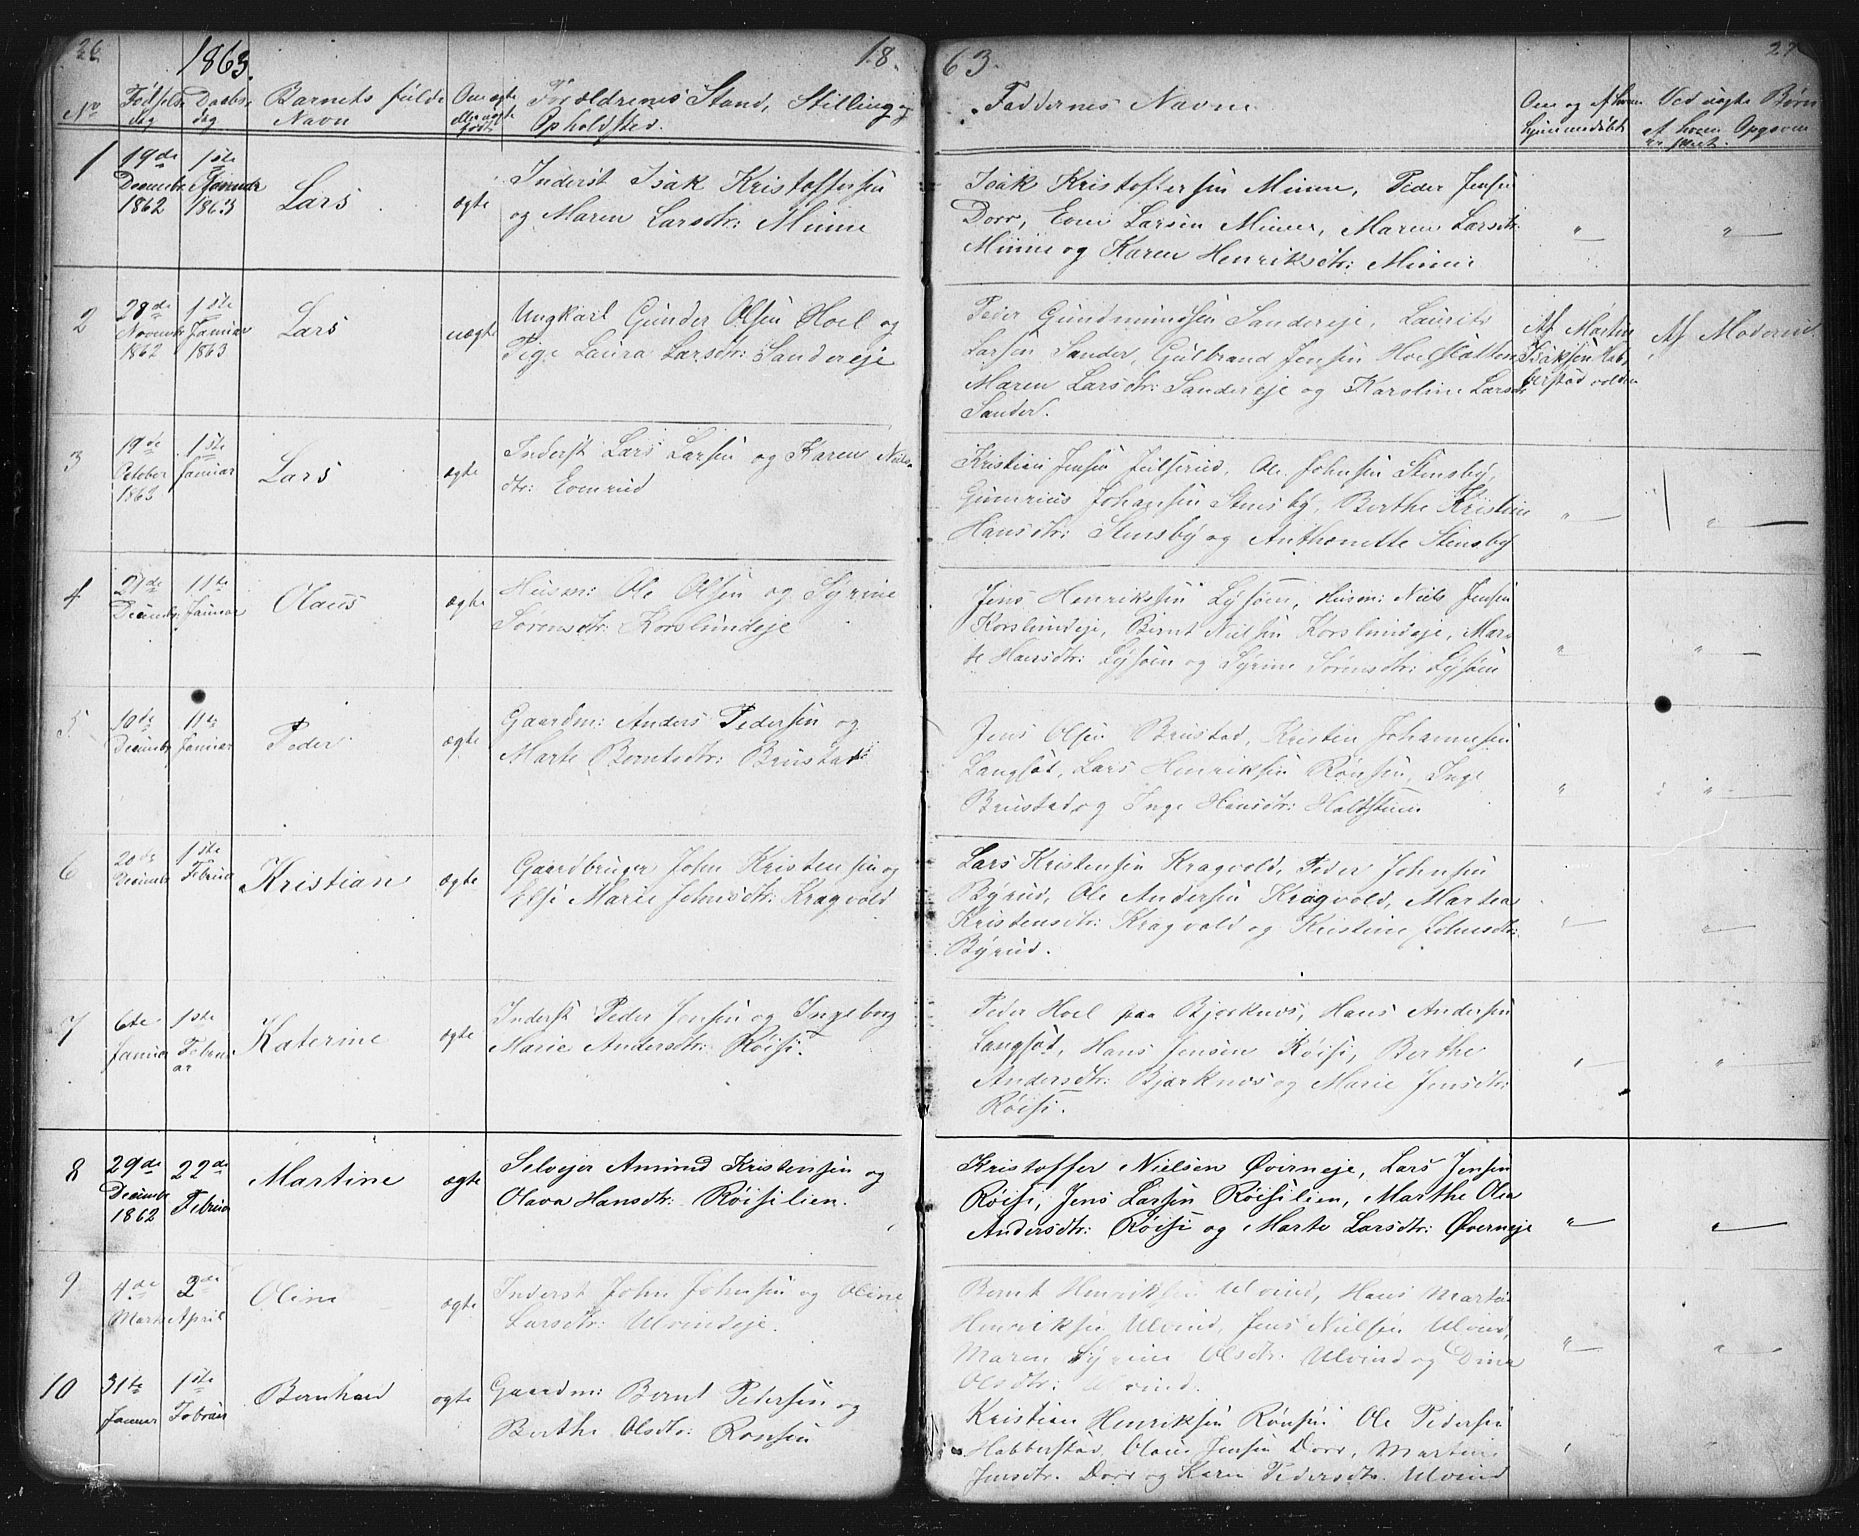 26
1863.
18.
63.
27
No
Fødsels Daabs Barnets fulde Om ægte Forældrenes Stand, Stilling og
dag dag Navn eller uægte født Opholdsted.
Faddernes Navne
Om og af hvem hjemmedøbt
Ved uægte Børn
af hvem Opgaven er skeet.
1
19de Decembr 1862
1ste Januar 1863
Lars
ægte
Inderst Isak Kristoffersen
og Maren Larsdtr: Minne
Isak Kristoffersen Minne, Peder Jensen
Dorr, Even Larsen Minne, Maren Larsdtr:
Minne og Karen Henriksdtr: Minne
2
28de Novembr 1862
1ste Januar 1863
Lars
uægte
Ungkarl Gunder Olsen Hoel og
Pige Laura Larsdtr: Sandereje
Peder Gundmundsen Sandereje, Laurits
Larsen Sander, Gulbrand Jensen Hoelslatten
Maren Larsdtr: Sandereje og Karoline Larsdtr
Sander.
Af Martin
Isaksen Hab
berstadvolden
Af Moderen
3
19de October 1863
1ste Januar
Lars
ægte
Inderst Lars Larsen og Karen Niels
dtr: Evenrud
Kristian Jensen Julserud, Ole Johnsen Stensby,
Gunerius Johagesen Stensby, Berthe Kristine
Hansdtr: Stensby og Anthonette Stensby
4
27de Decembr
11te Januar
Olaus
ægte
Husm: Ole Olsen og Syrine
Sørensdtr: Korslundeje
Jens Henrikssen Lysøen, Husm: Niels Jensen
Korslundeje, Bernt Nielsen Korslundeje, Mar
te Hansdtr: Lysøen og Syrine Sørensdtr: Lysøen
5
10de Decembr
11te Januar
Peder
ægte
Gaardm: Anders Pedersen og
Marte Berntsdtr: Brustad
Jens Olsen Brustad, Kristen Johannesen
Langsæt, Lars Henriksen Rønsen, Inge
Brustad og Inge Hansdtr:
6
20de Decembr
1ste Februar
Kristian
ægte
Gaardbruger John Kristensen og
Else Marie Johnsdtr: Kragvold
Lars Kristensen Kragvold, Peder Johnsen
Byrud, Ole Andersen Kragvold, Marthea
Kristensdtr: Kragvold og Kristine Johnsdtr:
Byrud.
7
6te Januar
1ste Februar
Katerine
ægte
Inderst Peder Jensen og Ingeborg
Marie Andersdtr: Røisi.
Peder Hoel paa Bjørknes, Hans Andersen
Langsæt, Hans Jensen Røisi, Berthe
Andersdtr: Bjørknes og Marie Jensdtr:
Røisi.
8
29de Decembr 1862
22de Februar
Martine
ægte
Selvejer Amund Kristensen og
Olava Hansdtr: Røisilien.
Kristoffer Nielsen Øverneje, Lars Jensen
Røisi, Jens Larsen Røisilien, Marthe Olea
Andersdtr: Røisi og Marte Larsdtr: Øverneje
9
4de Marts
2de April
Oline
ægte
Inderst John Johnsen og Oline
Larsdtr: Ulvindeje.
Bernt Henriksen Ulvind, Hans Martin
Henriksen Ulvind, Jens Nielsen Ulvind,
Maren Syrine Olsdtr. Ulvind og Dina
Olsdtr: Ulvind.
10
31te Januar
1ste Februar
Bernhard
ægte
Gaardm: Bernt Pedersen og
Berthe Olsdtr: Rønsen
Kristian Henriksen Rønsen, Ole Pedersen
Habberstad, Olaus Jensen Dorr, Martine
Jensdtr. Dorr og Karen Pedersdtr. Ulvind